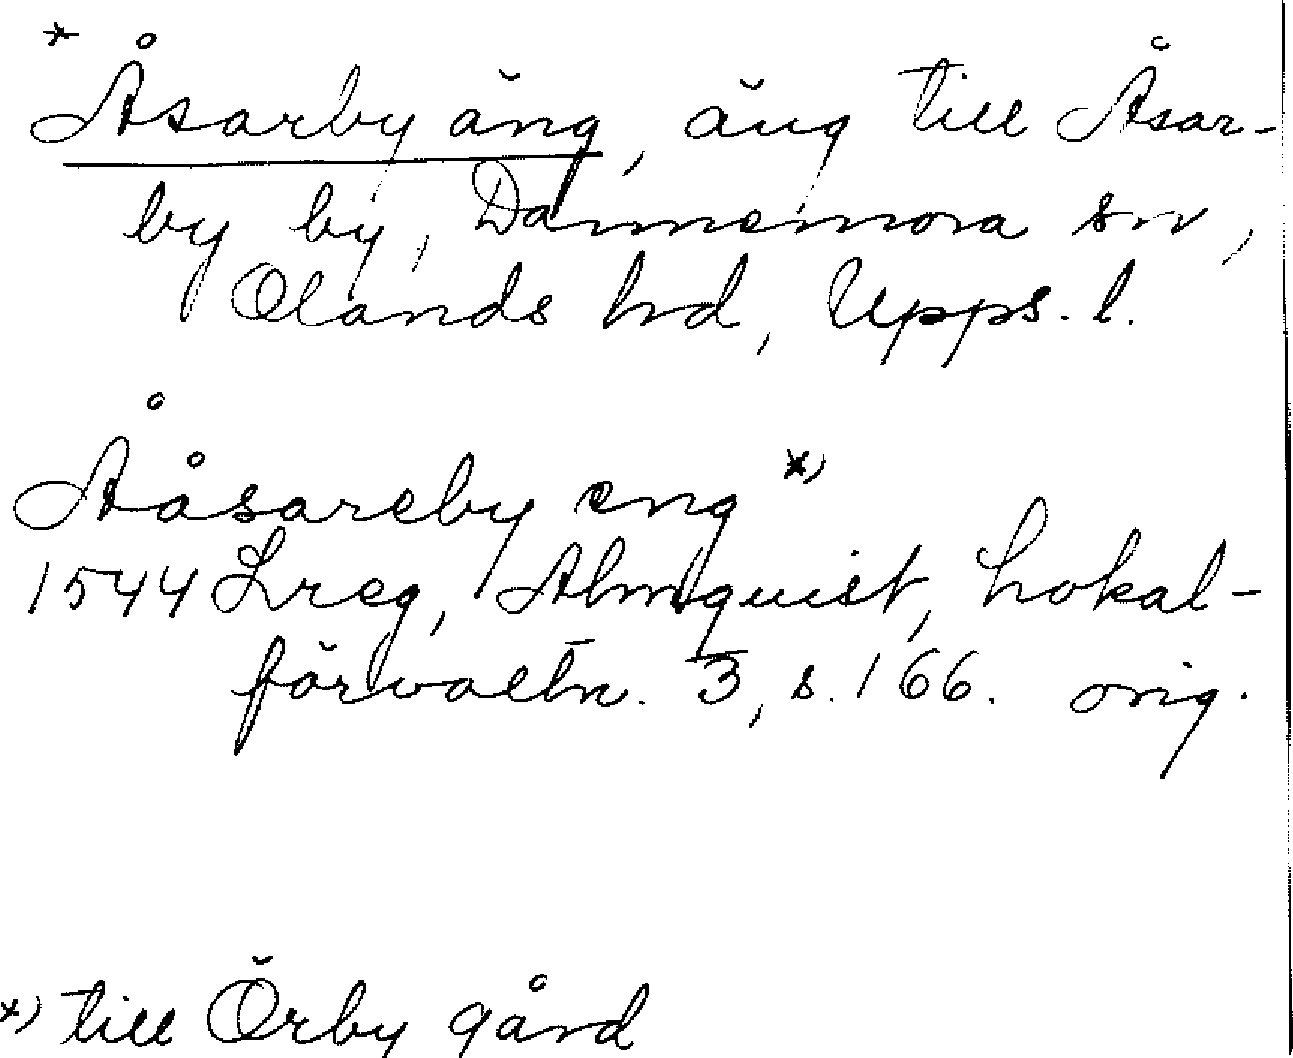 * Åsarby äng, äng till Åsar-
by by, Dannemora sn,
Olands hd, Upps. l.
Ååsareby eng *)
1544 Lreg, Almquist, Lokal-
förvaltn. 3, s. 166. orig.
*) till Örby gård